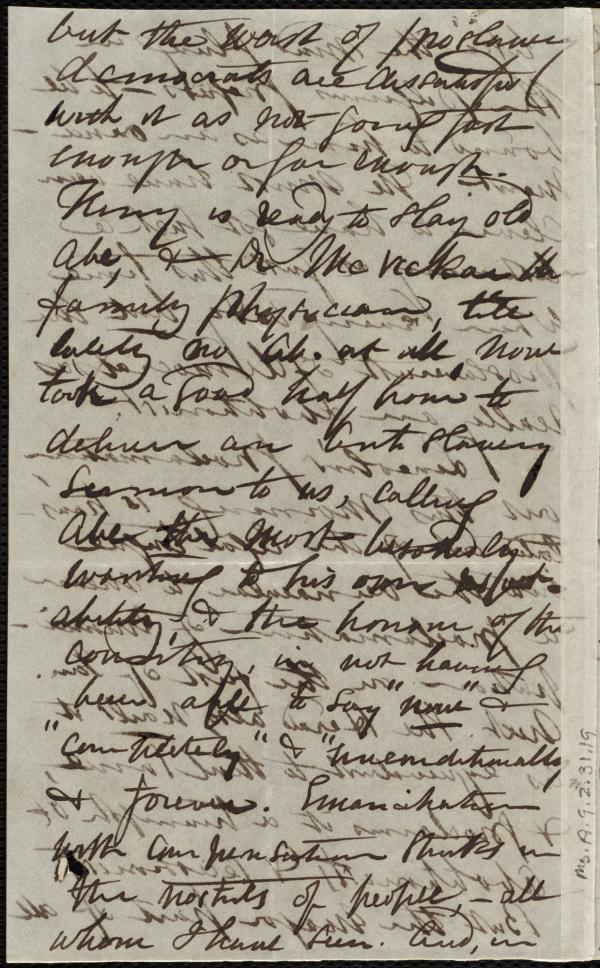 but the worst of proslavery
democrats are dissatisfied
with it as not going fast
enough or far enough.
Henry is ready to slay old
Abe, & Dr McVickar the
family physician, till
lately no Ab. at all now
took a good half hour to
deliver an anti slavery
sermon to us, calling
Abe the most besottedly
wanting to his own
ability, & the honour of the
country, in not having
been able to say "now" &
"completely" & "unconditionally
& forever. Emancipation
with compensation stinks in
the nostrils of people, - all
whom I have seen. And, in
Ms. A. 9. 2. 31. 19